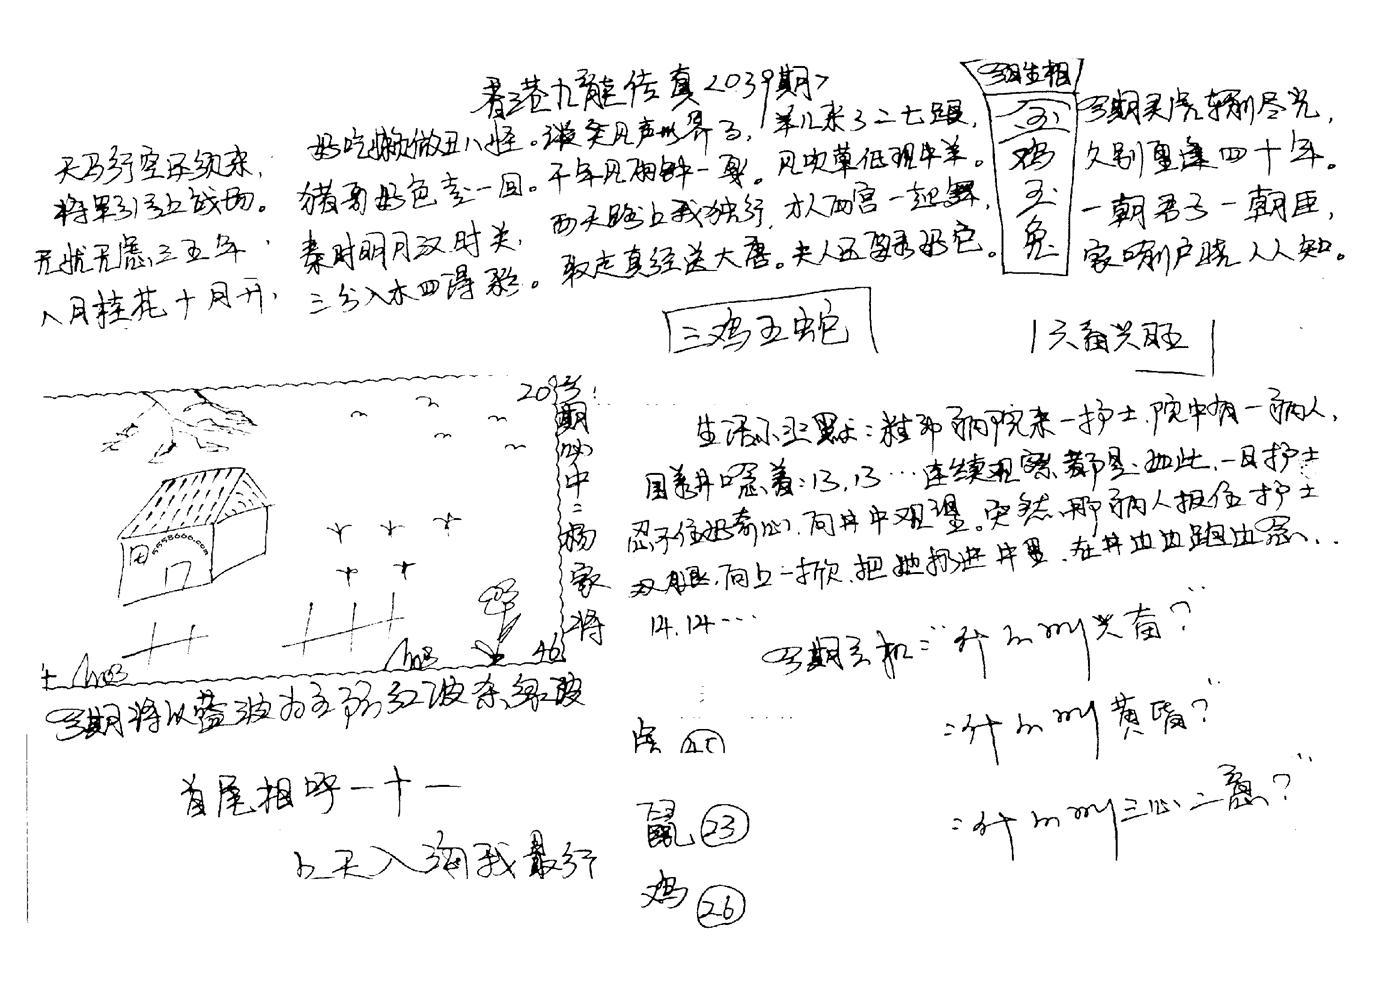 香港九龍传真2039期
天马行空还须来，
将军引马上战场。
无忧无虑三五年，
八月桂花十月开，
好吃懒做丑八怪。
猪哥好色走一回。
秦时明月汉时关，
三分入木四得彩。
千年几朝钟一
两天路上我独行，
取走真经送大唐。
羊儿来了二七
风吹草低现牛羊。
才人西宫一起舞，
生相
鸡
五
兔
期灵虎
尽光，
久别重逢四十年。
一朝君子一朝臣，
家喻户晓人人知。
三鸡五蛇
六畜兴旺
203
期必中：杨家将
5558600.com
46
期将以蓝波为主防红波杀绿波
首尾相呼一十一
上天入海我最行
生活小幽默：精神病院来一护士，院中有一病人，
围着井口念着：13，13…连续观察都是如此，一日护士
忍不住好奇心，向井中观望。突然，那病人抓住护士
双腿，向上一掀，把她扔进井里，在井边边跑边念…
14.14…
期玄机："什么叫兴奋？"
："什么叫黄昏？"
："什么叫三心二意？"
虎 45
鼠 23
鸡 26